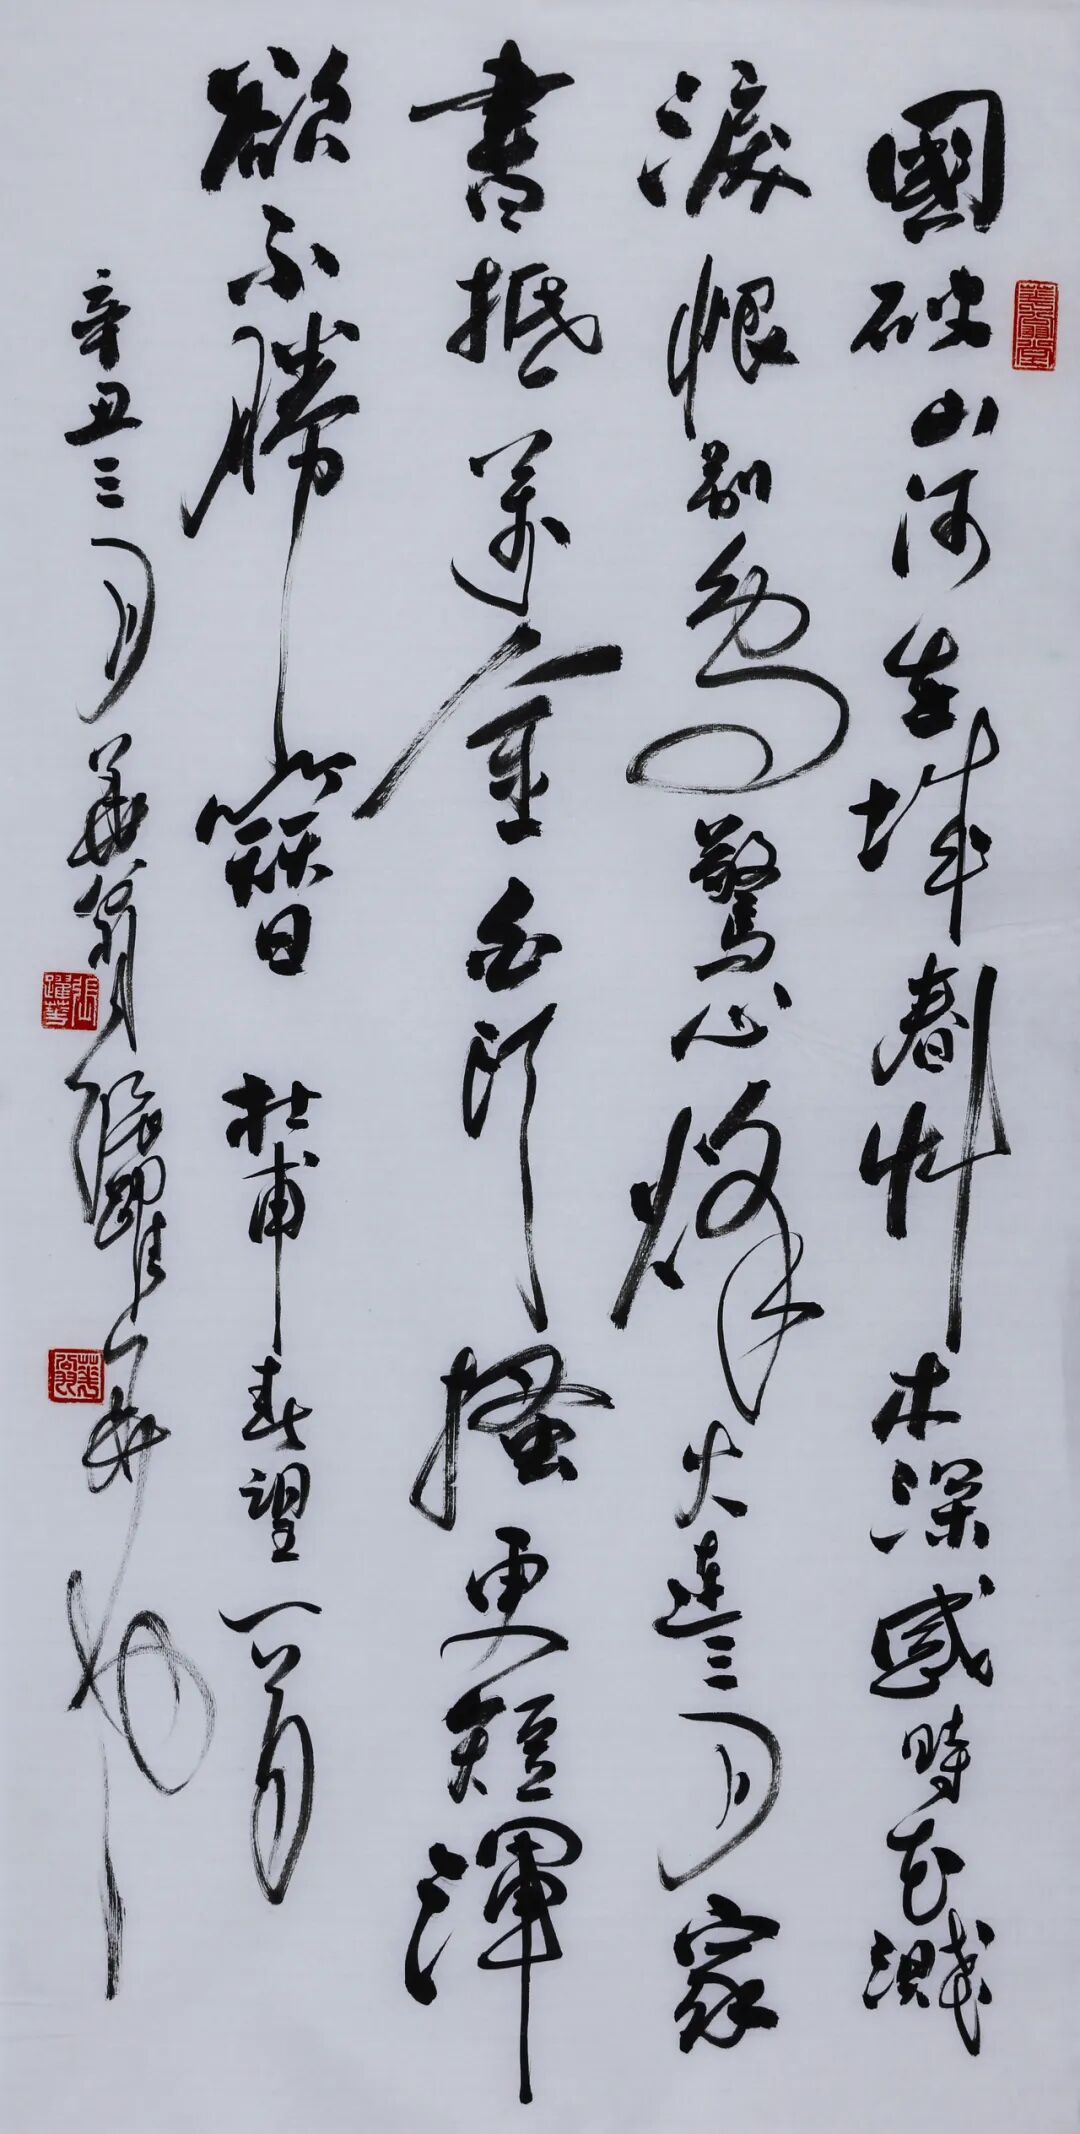 國破山河在城春艸木深感時花濺
淚恨別鳥驚心烽火連三月家
書抵萬金白頭搔更短渾
欲不勝簪 杜甫春望一首
辛丑三月華翁張躍華书
張躍華
華翁